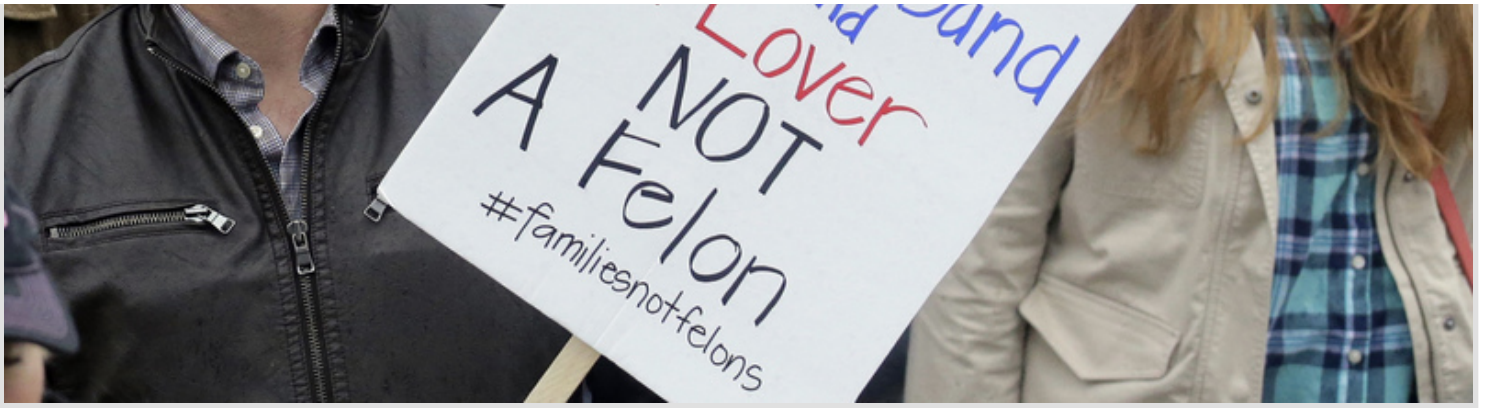 Lover
NOT
A Felon
#familiesnotfelons